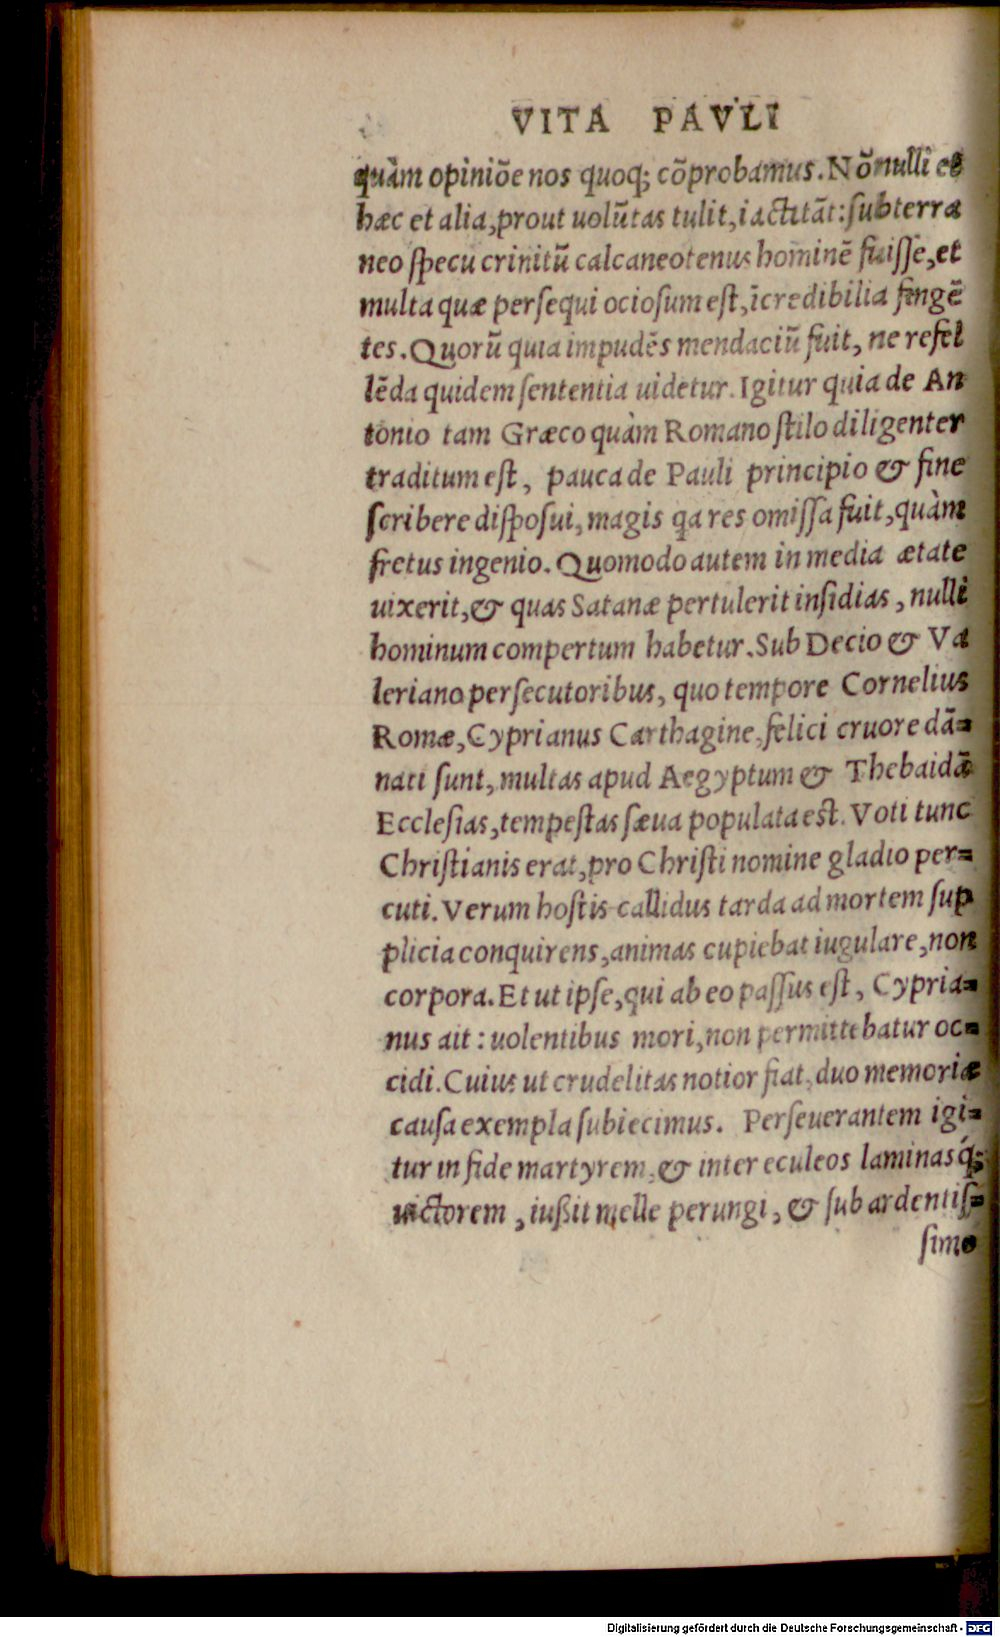 VITA PAVLI
quàm opiniõe nos quoq; cõprobamus. Nõnulli et
hæc et alia, prout uolũtas tulit, iactitãt: subterra
neo specu crinitũ calcaneotenus hominẽ fuisse, et
multa quæ persequi ociosum est, ĩcredibilia fingẽ
tes. Quorũ quia impudẽs mendaciũ fuit, ne refel
lẽda quidem sententia uidetur. Igitur quia de An
tonio tam Græco quàm Romano stilo diligenter
traditum est, pauca de Pauli principio & fine
scribere disposui, magis qa res omissa fuit, quàm
fretus ingenio. Quomodo autem in media ætate
uixerit, & quas Satanæ pertulerit insidias, nulli
hominum compertum habetur. Sub Decio & Va
leriano persecutoribus, quo tempore Cornelius
Romæ, Cyprianus Carthagine, felici cruore dã=
nati sunt, multas apud Aegyptum & Thebaidã
Ecclesias, tempestas sæua populata est. Voti tunc
Christianis erat, pro Christi nomine gladio per=
cuti. Verum hostis callidus tarda ad mortem sup
plicia conquirens, animas cupiebat iugulare, non
corpora. Et ut ipse, qui ab eo passus est, Cypria=
nus ait: uolentibus mori, non permittebatur oc=
cidi. Cuius ut crudelitas notior fiat, duo memoriæ
causa exempla subiecimus. Perseuerantem igi=
tur in fide martyrem, & inter eculeos laminasq́;
uictorem, iußit melle perungi, & sub ardentis=
simo
Digitalisierung gefördert durch die Deutsche Forschungsgemeinschaft - DFG